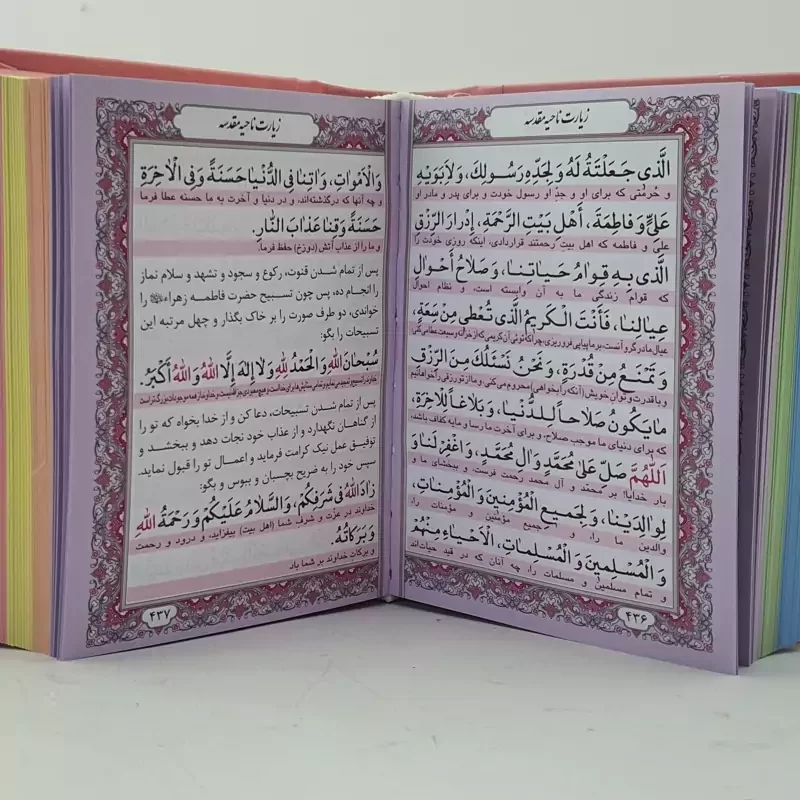 زیارت ناحیه مقدسه
الَّذی جَعَلْتَهُ لَهُ وَلِجَدِّهِ رَسُولِكَ، وَلِاَبَوَیْهِ
و حُرمتی که برای او و جدّ او رسول خودت و برای پدر و مادر او
عَلِیٍّ وَفاطِمَةَ، اَهْلِ بَیْتِ الرَّحْمَةِ، اِدْرارَ الرِّزْقِ
علی و فاطمه که اهل بیت رحمتند قراردادی، اینکه روزی خودت را
الَّذی بِهِ قِوامُ حَیاتِنا، وَصَلاحُ اَحْوالِ
که قوام زندگی ما به آن وابسته است، و نظام احوال
عِیالِنا، فَاَنْتَ الْكَریمُ الَّذی تُعْطی مِنْ سِعَةٍ،
عیال ما در گرو آنست، بر ما پیاپی فرو ریزی، چرا که توئی آن کریمی که از خزانه وسیعت عطا می کنی
وَ تَمْنَعُ مِنْ قُدْرَةٍ، وَ نَحْنُ نَسْئَلُكَ مِنَ الرِّزْقِ
و با قدرت و توان خویش (آنکه را بخواهی) محروم می کنی و ما از تو رزقی را خواهانیم
مایَكُونُ صَلاحاً لِلدُّنْیا، وَبَلاغاً لِلْاخِرَةِ،
که برای دنیای ما موجب صلاح، و برای آخرت ما رسا و مایه کفاف باشد،
اَللّهُمَّ صَلِّ عَلی مُحَمَّدٍ وَالِ مُحَمَّدٍ، وَ اغْفِرْلَنا وَ
بار خدایا! بر محمّد و آل محمد رحمت فرست، و ببخشای ما و
لِوالِدَیْنا، وَ لِجَمیعِ الْمُؤْمِنینَ وَالْمُؤْمِناتِ،
والدین ما را، و جمیع مؤمنین و مؤمنات را،
وَ الْمُسْلِمینَ وَ الْمُسْلِماتِ، الْاَحْیاءِ مِنْهُمْ
و تمام مسلمین و مسلمات را، چه آنان که در قید حیات‌اند
۴۳۶
زیارت ناحیه مقدسه
وَالْاَمْواتِ، وَ اتِنا فِی الدُّنْیا حَسَنَةً وَ فِی الْاخِرَةِ
و چه آنها که درگذشته‌اند، و در دنیا و آخرت به ما حسنه عطا فرما
حَسَنَةً وَقِنا عَذابَ النّارِ.
و ما را از عذاب آتش (دوزخ) حفظ فرما.
پس از تمام شدن قنوت، رکوع و سجود و تشهد و سلام نماز
را انجام ده، پس چون تسبیح حضرت فاطمه زهراء را
خواندی، دو طرف صورت را بر خاک بگذار و چهل مرتبه این
تسبیحات را بگو:
سُبْحانَ اللهِ وَالْحَمْدُ لِلّهِ وَلا اِلهَ اِلَّا اللهُ وَاللهُ اَكْبَرُ.
پس از تمام شدن تسبیحات، دعا کن و از خدا بخواه که تو را
از گناهان نگهدارد و از عذاب خود نجات دهد و ببخشد و
توفیق عمل نیک کرامت فرماید و اعمال تو را قبول نماید.
سپس خود را به ضریح بچسبان و ببوس و بگو:
زادَ اللهُ فی شَرَفِكُمْ، وَالسَّلامُ عَلَیْكُمْ وَ رَحْمَةُ اللهِ
خداوند در عزّت و شرف شما (اهل بیت) بیفزاید، و درود و رحمت
وَ بَرَكاتُهُ.
و برکات خداوند بر شما باد
۴۳۷